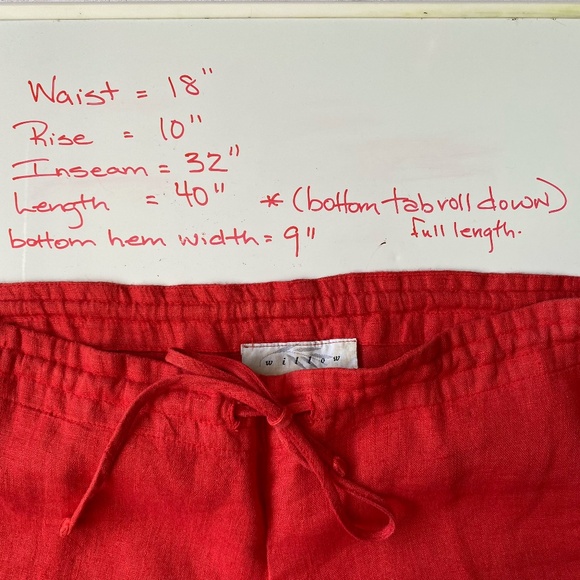 Waist = 18"
Rise = 10"
Inseam = 32"
Length = 40" * (bottom tab roll down)
full length.
bottom hem width = 9"
willow